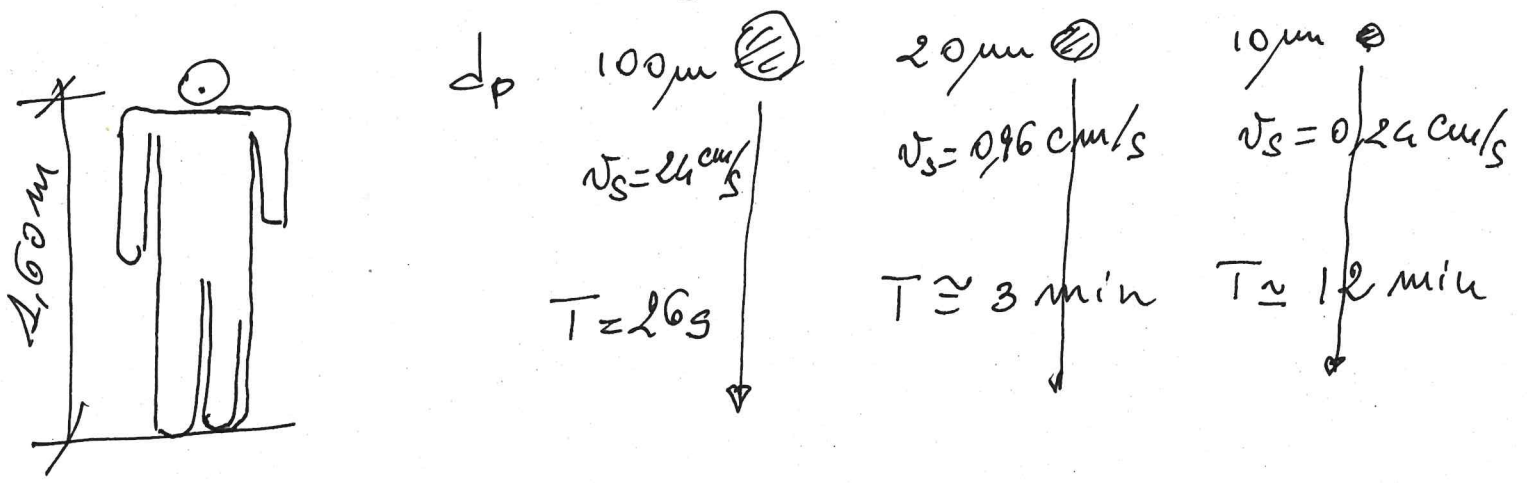 1,60 m
dp
100 μm
vs = 24 cm/s
T = 26s
20 μm
vs = 0,96 cm/s
T ≅ 3 min
10 μm
vs = 0,24 cm/s
T ≃ 12 min